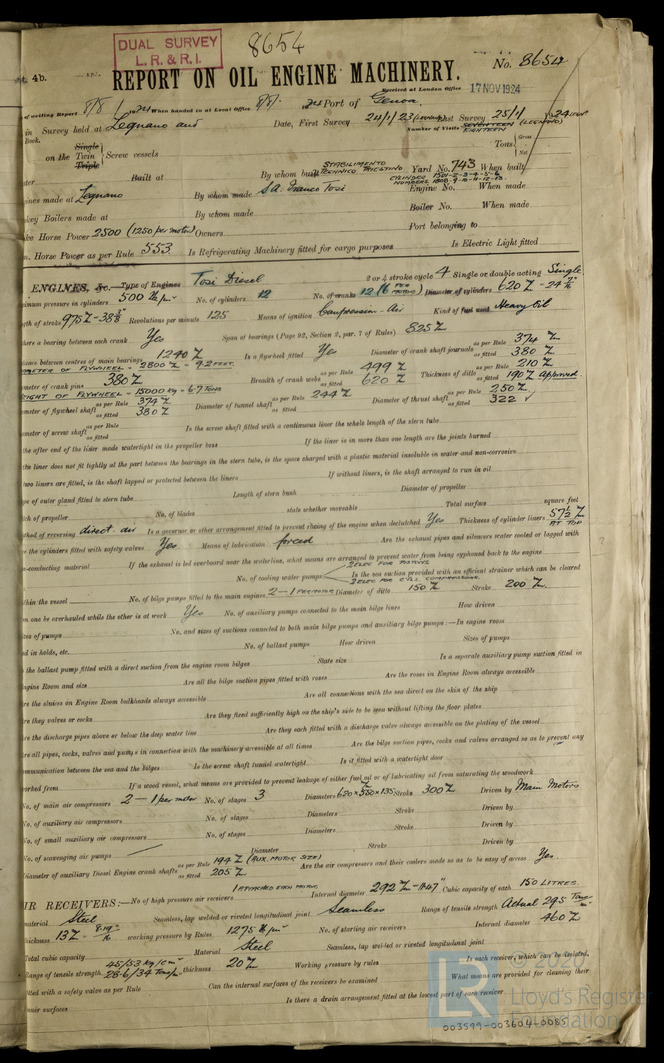 DUAL SURVEY
L. R. & R. I.
8654
4b.
REPORT ON OIL ENGINE MACHINERY.
No. 8654
Received at London Office 17 NOV 1924
of writing Report 8/8/ When handed in at Local Office 8/8/ 24 Port of Genoa.
Survey held at Legnano and Date, First Survey 24/1/23 (Legnano) Last Survey 25/1/24
Number of Visits SEVENTEEN (LEGNANO) EIGHTEEN
on the Single Twin Triple Screw vessels Tons Gross Net
Built at By whom built STABILIMENTO TECHNICO TRIESTINO Yard No. 743 When built
CYLINDER NUMBERS
ines made at Legnano By whom made S.A. Franco Tosi Engine No. When made
key Boilers made at By whom made Boiler No. When made
ke Horse Power 2500 (1250 per motor) Owners Port belonging to
Horse Power as per Rule 553 Is Refrigerating Machinery fitted for cargo purposes Is Electric Light fitted
ENGINES, &c.—Type of Engines Tosi Diesel 2 or 4 stroke cycle 4 Single or double acting Single
imum pressure in cylinders 500 No. of cylinders 12 No. of cranks 12 (6 PER MOTOR) Diameter of cylinders 620
gth of stroke 975 Revolutions per minute 125 Means of ignition Compression Air Kind of fuel used Heavy Oil
there a bearing between each crank Yes Span of bearings (Page 92, Section 2, par. 7 of Rules) 825
tance between centres of main bearings 1240 Is a flywheel fitted Yes Diameter of crank shaft journals as per Rule 374 as fitted 380
DIAMETER OF FLYWHEEL - 2800 - 9.2 FEET.
meter of crank pins 380 Breadth of crank webs as per Rule 499 as fitted 620 Thickness of ditto as per Rule 210 as fitted 190 approved
WEIGHT OF FLYWHEEL - 15000 KG - 6.7 TONS
meter of flywheel shaft as per Rule 374 as fitted 380 Diameter of tunnel shaft as per Rule 244 as fitted Diameter of thrust shaft as per Rule 250 as fitted 322
meter of screw shaft as per Rule as fitted Is the screw shaft fitted with a continuous liner the whole length of the stern tube
the after end of the liner made watertight in the propeller boss If the liner is in more than one length are the joints burned
the liner does not fit tightly at the part between the bearings in the stern tube, is the space charged with a plastic material insoluble in water and non-corrosive
two liners are fitted, is the shaft lapped or protected between the liners If without liners, is the shaft arranged to run in oil
pe of outer gland fitted to stern tube Length of stern bush Diameter of propeller
tch of propeller No. of blades state whether moveable Total surface square feet
thod of reversing direct air Is a governor or other arrangement fitted to prevent racing of the engine when declutched Yes Thickness of cylinder liners 57½ AT TOP
re the cylinders fitted with safety valves Yes Means of lubrication forced Are the exhaust pipes and silencers water cooled or lagged with
n-conducting material If the exhaust is led overboard near the waterline, what means are arranged to prevent water from being syphoned back to the engine
No. of cooling water pumps Is the sea suction provided with an efficient strainer which can be cleared
ithin the vessel No. of bilge pumps fitted to the main engines 2 - 1 PER MOTOR Diameter of ditto 150 Stroke 200
n one be overhauled while the other is at work Yes No. of auxiliary pumps connected to the main bilge lines How driven
izes of pumps No. and sizes of suctions connected to both main bilge pumps and auxiliary bilge pumps:—In engine room
nd in holds, etc. No. of ballast pumps How driven Sizes of pumps
the ballast pump fitted with a direct suction from the engine room bilges State size Is a separate auxiliary pump suction fitted in
ngine Room and size Are all the bilge suction pipes fitted with roses Are the roses in Engine Room always accessible
re the sluices on Engine Room bulkheads always accessible Are all connections with the sea direct on the skin of the ship
re they valves or cocks Are they fixed sufficiently high on the ship's side to be seen without lifting the floor plates
re the discharge pipes above or below the deep water line Are they each fitted with a discharge valve always accessible on the plating of the vessel
re all pipes, cocks, valves and pumps in connection with the machinery accessible at all times Are the bilge suction pipes, cocks and valves arranged so as to prevent any
mmunication between the sea and the bilges Is the screw shaft tunnel watertight Is it fitted with a watertight door
orked from If a wood vessel, what means are provided to prevent leakage of either fuel oil or of lubricating oil from saturating the woodwork
No. of main air compressors 2 - 1 per motor No. of stages 3 Diameters 620 x 550 x 135 Stroke 300 Driven by Main Motors
No. of auxiliary air compressors No. of stages Diameters Stroke Driven by
No. of small auxiliary air compressors No. of stages Diameters Stroke Driven by
No. of scavenging air pumps Diameter Stroke Driven by
Diameter of auxiliary Diesel Engine crank shafts as per Rule 194 (AUX. MOTOR SIZE) as fitted 205 Are the air compressors and their coolers made so as to be easy of access Yes
IR RECEIVERS:—No. of high pressure air receivers 1 ATTACHED EACH MOTOR Internal diameter 292 - 11.47" Cubic capacity of each 150 LITRES.
material Steel Seamless, lap welded or riveted longitudinal joint Seamless Range of tensile strength Actual 29.5
thickness 13 working pressure by Rules 1275 No. of starting air receivers Internal diameter 460
Total cubic capacity Material Steel Seamless, lap welded or riveted longitudinal joint
Range of tensile strength 45/53 kg/cm² 28.6/34 thickness 20 Working pressure by rules Is each receiver, which can be isolated,
itted with a safety valve as per Rule Can the internal surfaces of the receivers be examined What means are provided for cleaning their
nner surfaces Is there a drain arrangement fitted at the lowest part of each receiver
© 2020
LR
Lloyd's Register
Foundation
003599-003604-0085